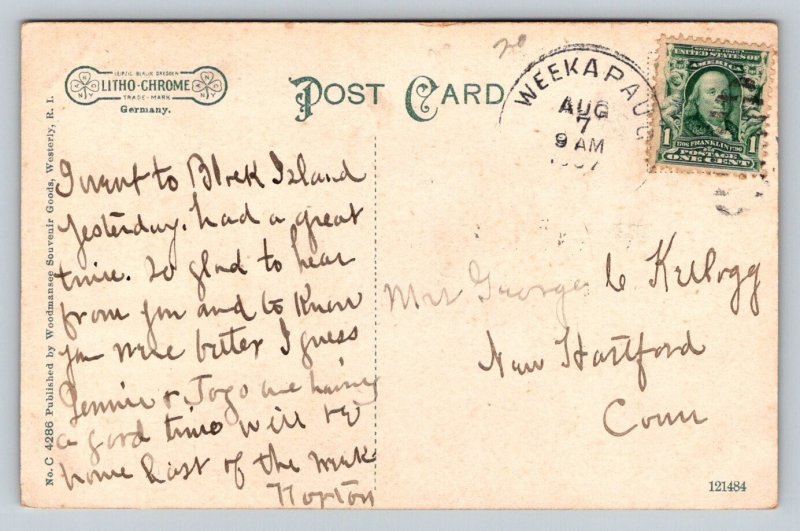 LEIPZIG BERLIN DRESDEN
LITHO-CHROME
TRADE-MARK
Germany.
POST CARD
20
WEEKAPAUG
AUG
7
9 AM
1907
SERIES 1902
UNITED STATES OF
AMERICA
1 1
1706 FRANKLIN 1790
POSTAGE
ONE CENT
No. C 4286 Published by Woodmansee Souvenir Goods, Westerly, R. I.
I went to Block Island
yesterday. had a great
time. So glad to hear
from you and to know
you were better I guess
Jennie & Jogo are having
a good time will be
home last of the week
Norton
Mrs George C Kellogg
New Hartford
Conn
121484